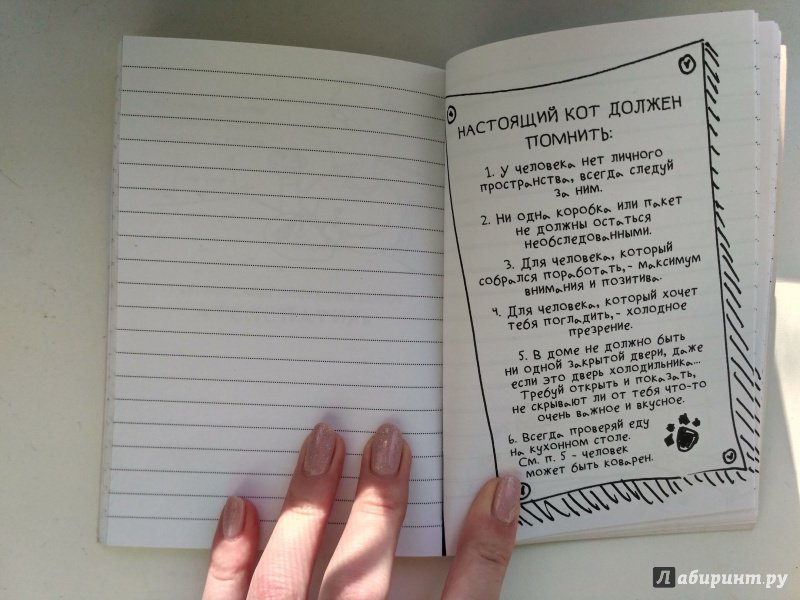 НАСТОЯЩИЙ КОТ ДОЛЖЕН
ПОМНИТЬ:
1. У человека нет личного
пространства, всегда следуй
за ним.
2. Ни одна коробка или пакет
не должны остаться
необследованными.
3. Для человека, который
собрался поработать,- максимум
внимания и позитива.
4. Для человека, который хочет
тебя погладить,- холодное
презрение.
5. В доме не должно быть
ни одной закрытой двери, даже
если это дверь холодильника...
Требуй открыть и показать,
не скрывают ли от тебя что-то
очень важное и вкусное.
6. Всегда проверяй еду
на кухонном столе.
См. п. 5 - человек
может быть коварен.
Лабиринт.ру